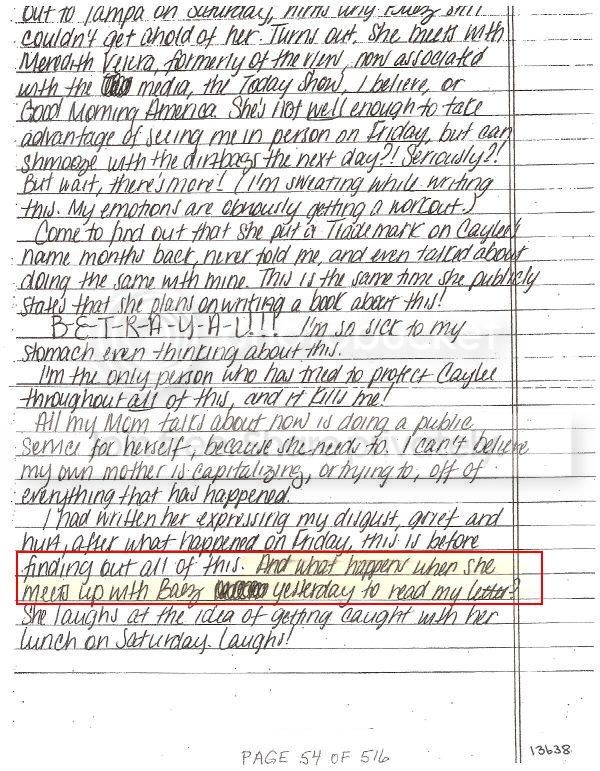 out to Tampa on Saturday, hints why Baez still
couldn't get ahold of her. Turns out, she meets with
Meredith Veiera, formerly of the View, now associated
with the media, the Today Show, I believe, or
Good Morning America. She's not well enough to take
advantage of seeing me in person on Friday, but can
shmooze with the dirtbags the next day?! Seriously?!
But wait, there's more! (I'm sweating while writing
this. My emotions are obviously getting a workout.)
Come to find out that she put a Trademark on Caylee's
name months back, never told me, and even talked about
doing the same with mine. This is the same time she publicly
states that she plans on writing a book about this!
B-E-T-R-A-Y-A-L!!! I'm so sick to my
stomach even thinking about this.
I'm the only person who has tried to protect Caylee
throughout all of this, and it kills me!
All my Mom talks about now is doing a public
service for herself, because she needs to. I can't believe
my own mother is capitalizing, or trying to, off of
everything that has happened.
I had written her expressing my disgust, grief and
hurt, after what happened on Friday, this is before
finding out all of this. And what happens when she
meets up with Baez yesterday to read my letter?
She laughs at the idea of getting caught with her
lunch on Saturday. Laughs!
PAGE 54 OF 516
13638